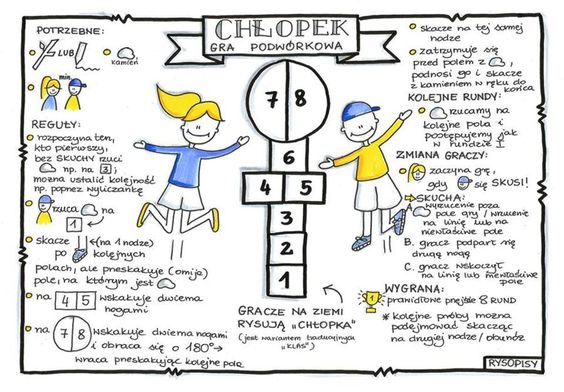 CHŁOPEK
GRA PODWÓRKOWA
POTRZEBNE:
LUB
kamień
min
REGUŁY:
rozpoczyna ten,
kto pierwszy,
bez SKUCHY rzuci
np. na 3;
można ustalić kolejność
np. poprzez wyliczankę
rzuca na
1
skacze (na 1 nodze)
po kolejnych
polach, ale przeskakuje (omija)
pole, na którym jest
na 4 5 wskakuje dwiema
nogami
na 7 8 wskakuje dwiema nogami
i obraca się o 180° →
wraca przeskakując kolejne pola
7 8
6
4 5
3
2
1
GRACZE NA ZIEMI
RYSUJĄ „CHŁOPKA"
(jest wariantem tradycyjnych
„KLAS")
skacze na tej samej
nodze
zatrzymuje się
przed polem z
podnosi go i skacze
z kamieniem w ręku do
końca
KOLEJNE RUNDY:
rzucamy na
kolejne pola i
postępujemy jak
w rundzie I
ZMIANA GRACZY:
zaczyna grę,
gdy się SKUSI!
SKUCHA:
A. wyrzucenie poza
pole gry / wrzucenie
na linię lub na
niewłaściwe pole
B. gracz podparł się
drugą nogą
C. gracz wskoczył
na linię lub niewłaściwe
pole
WYGRANA:
1 prawidłowe przejście 8 RUND
* kolejne próby można
podejmować skacząc
na drugiej nodze / obunóż
RYSOPISY